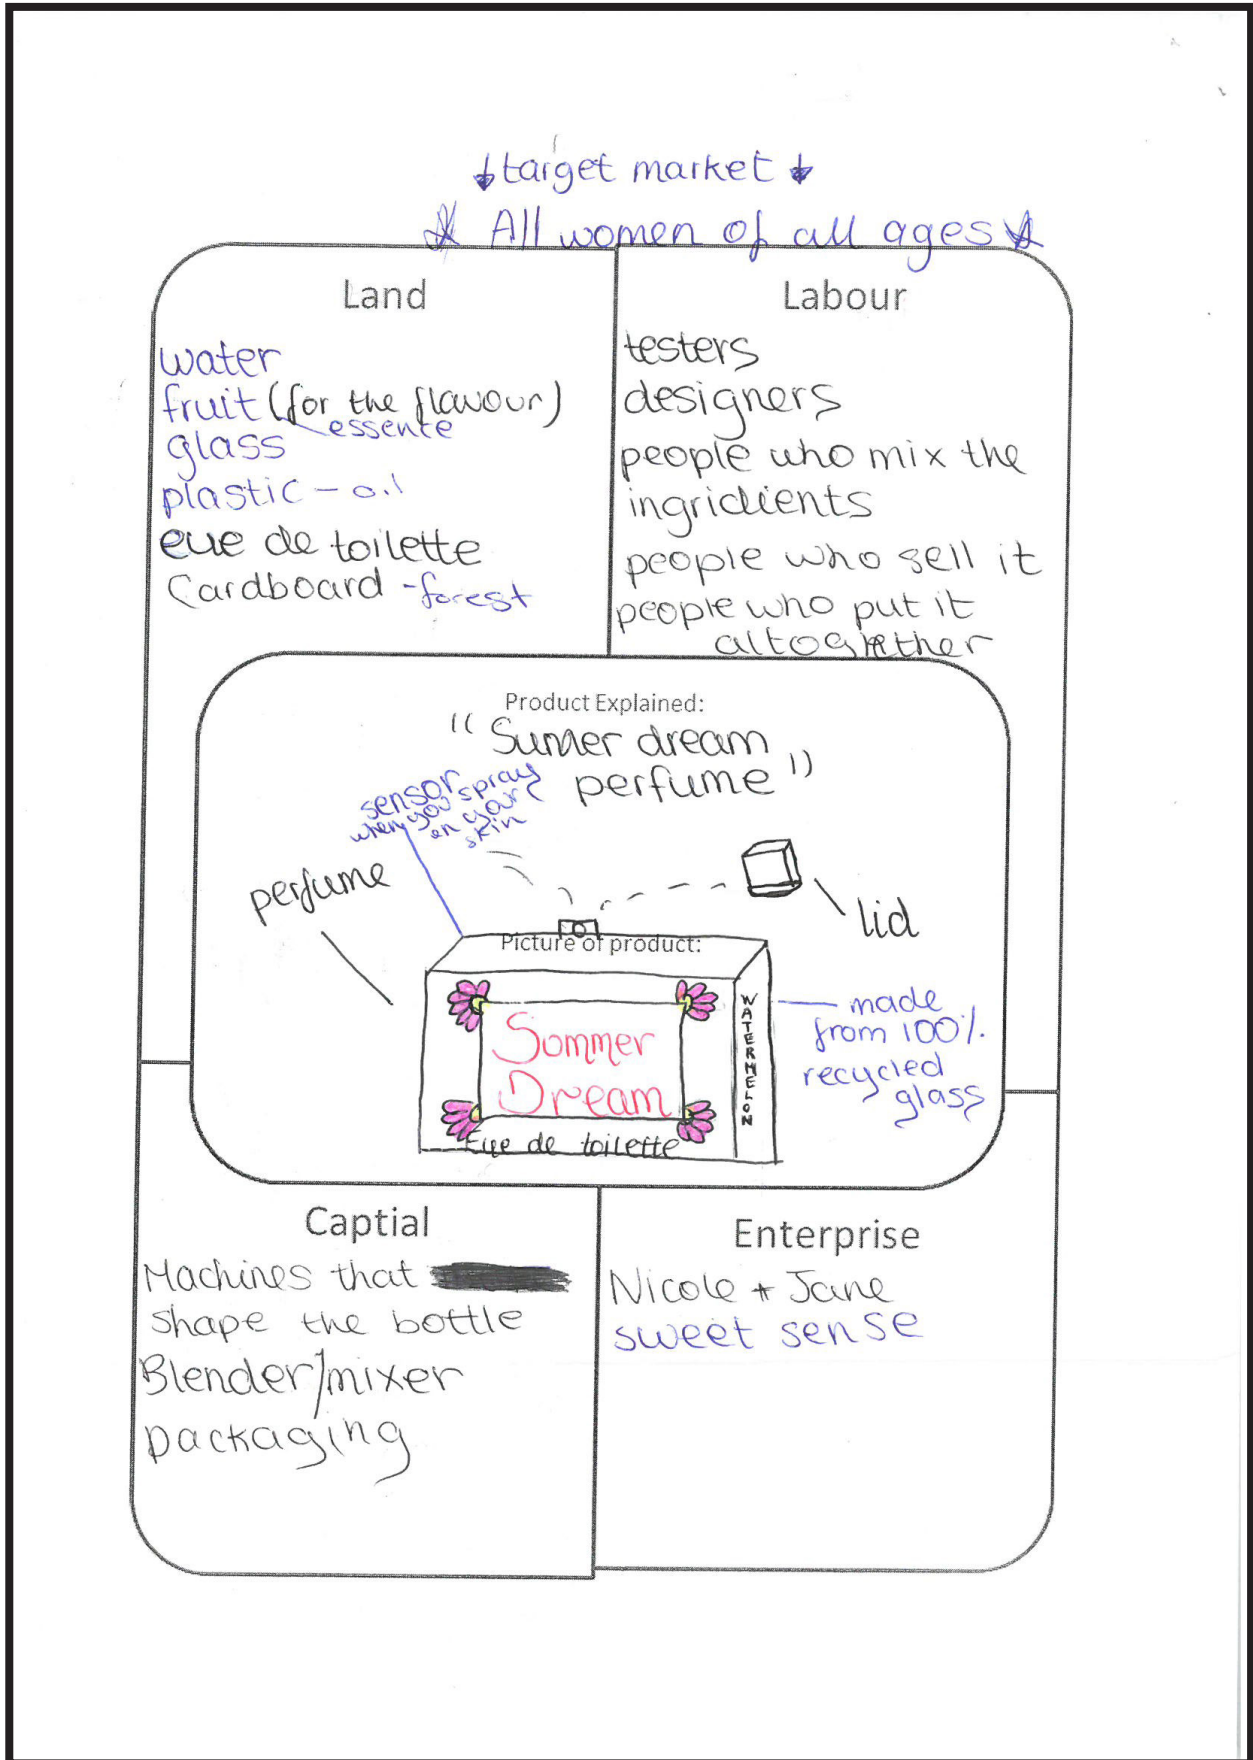 target market
All women of all ages
Land
water
fruit (for the flavour)
essence
glass
plastic - oil
eue de toilette
Cardboard - forest
Labour
testers
designers
people who mix the
ingridients
people who sell it
people who put it
altogther
Product Explained:
"Summer dream
perfume"
sensor
when you spray
on your
skin
perfume
lid
Picture of product:
Sommer
Dream
Eue de toilette
WATERMELON
made
from 100%
recycled
glass
Captial
Machines that
shape the bottle
Blender/mixer
packaging
Enterprise
Nicole + Jane
sweet sense